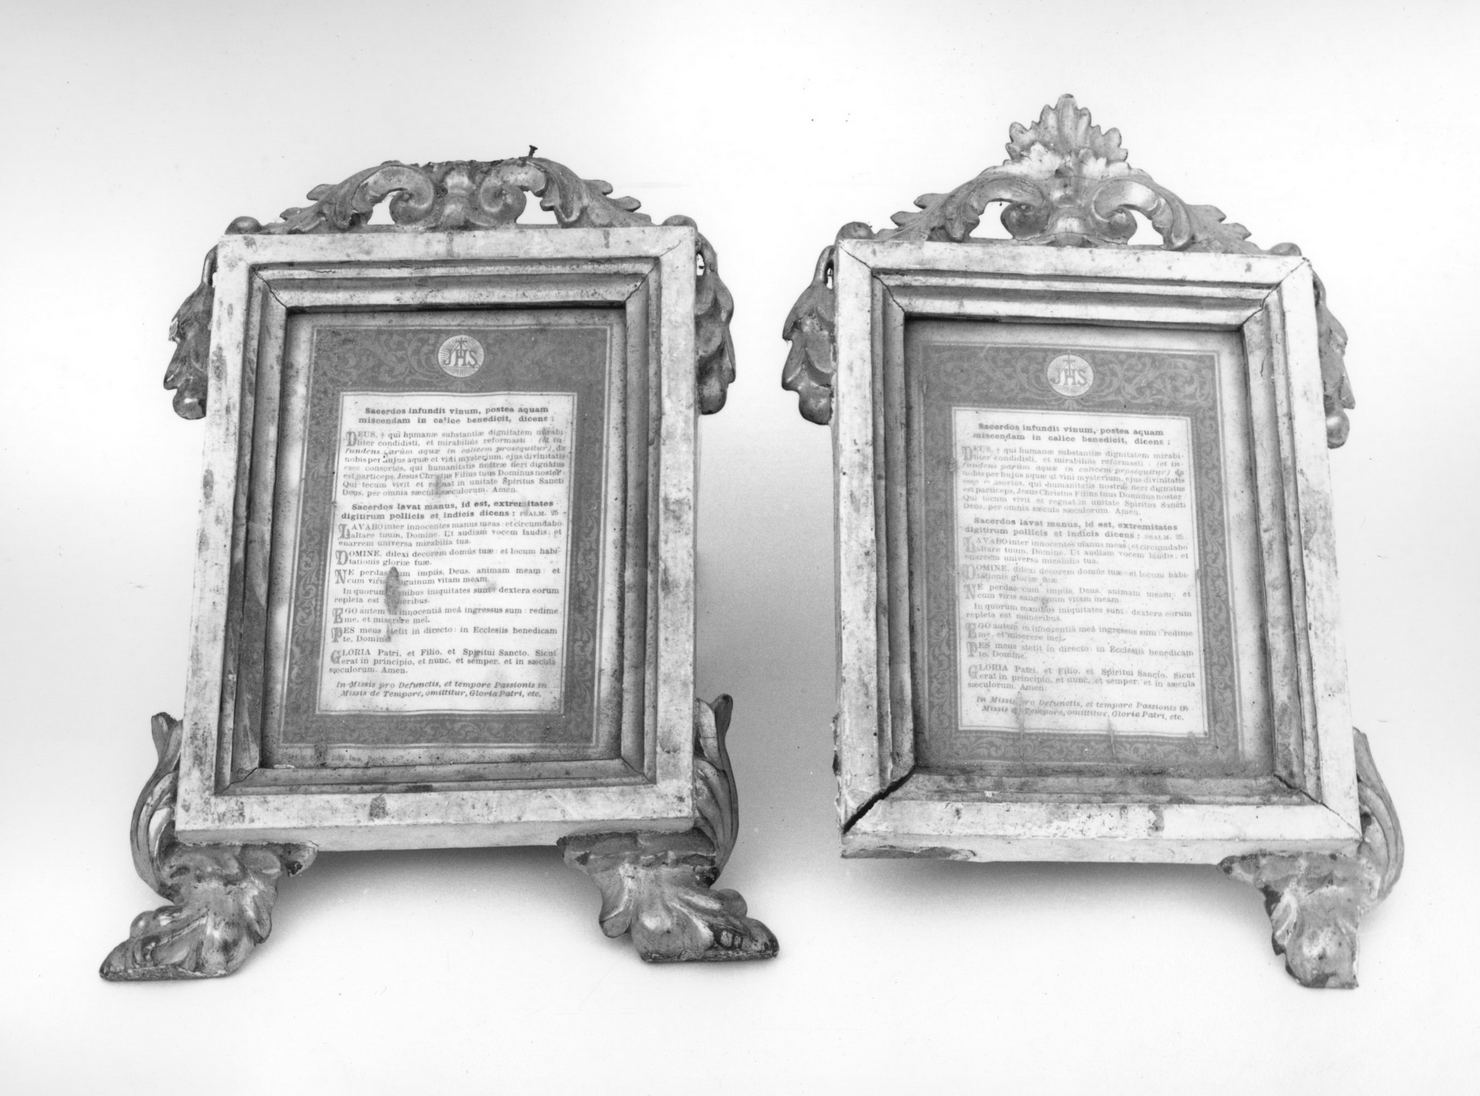 JHS
Sacerdos infundit vinum, postea aquam
miscendam in calice benedicit, dicens:
DEUS, † qui humanæ substantiæ dignitatem mirabi-
liter condidisti, et mirabiliùs reformasti: (et in-
fundens parùm aquæ in calicem prosequitur) da
nobis per hujus aquæ et vini mysterium, ejus divinitatis
esse consortes, qui humanitatis nostræ fieri dignatus
est particeps, Jesus Christus Filius tuus Dominus noster
Qui tecum vivit et regnat in unitate Spiritus Sancti
Deus, per omnia sæcula sæculorum. Amen.
Sacerdos lavat manus, id est, extremitates
digitirum pollicis et indicis dicens: PSALM. 25
LAVABO inter innocentes manus meas: et circumdabo
altare tuum, Domine. Ut audiam vocem laudis: et
enarrem universa mirabilia tua.
DOMINE, dilexi decorem domûs tuæ: et locum habi-
tationis gloriæ tuæ.
NE perdas cum impiis, Deus, animam meam: et
cum viris sanguinum vitam meam.
In quorum manibus iniquitates sunt: dextera eorum
repleta est muneribus.
EGO autem in innocentiâ meâ ingressus sum: redime
me, et miserere mei.
PES meus stetit in directo: in Ecclesiis benedicam
te, Domine.
GLORIA Patri, et Filio, et Spiritui Sancto. Sicut
erat in principio, et nunc, et semper, et in sæcula
sæculorum. Amen.
In Missis pro Defunctis, et tempore Passionis in
Missis de Tempore, omittitur, Gloria Patri, etc.
JHS
Sacerdos infundit vinum, postea aquam
miscendam in calice benedicit, dicens:
DEUS, † qui humanæ substantiæ dignitatem mirabi-
liter condidisti, et mirabiliùs reformasti: (et in-
fundens parùm aquæ in calicem prosequitur) da
nobis per hujus aquæ et vini mysterium, ejus divinitatis
esse consortes, qui humanitatis nostræ fieri dignatus
est particeps, Jesus Christus Filius tuus Dominus noster
Qui tecum vivit et regnat in unitate Spiritus Sancti
Deus, per omnia sæcula sæculorum. Amen.
Sacerdos lavat manus, id est, extremitates
digitirum pollicis et indicis dicens: PSALM. 25
LAVABO inter innocentes manus meas: et circumdabo
altare tuum, Domine. Ut audiam vocem laudis: et
enarrem universa mirabilia tua.
DOMINE, dilexi decorem domûs tuæ: et locum habi-
tationis gloriæ tuæ.
NE perdas cum impiis, Deus, animam meam: et
cum viris sanguinum vitam meam.
In quorum manibus iniquitates sunt: dextera eorum
repleta est muneribus.
EGO autem in innocentiâ meâ ingressus sum: redime
me, et miserere mei.
PES meus stetit in directo: in Ecclesiis benedicam
te, Domine.
GLORIA Patri, et Filio, et Spiritui Sancto. Sicut
erat in principio, et nunc, et semper, et in sæcula
sæculorum. Amen.
In Missis pro Defunctis, et tempore Passionis in
Missis de Tempore, omittitur, Gloria Patri, etc.